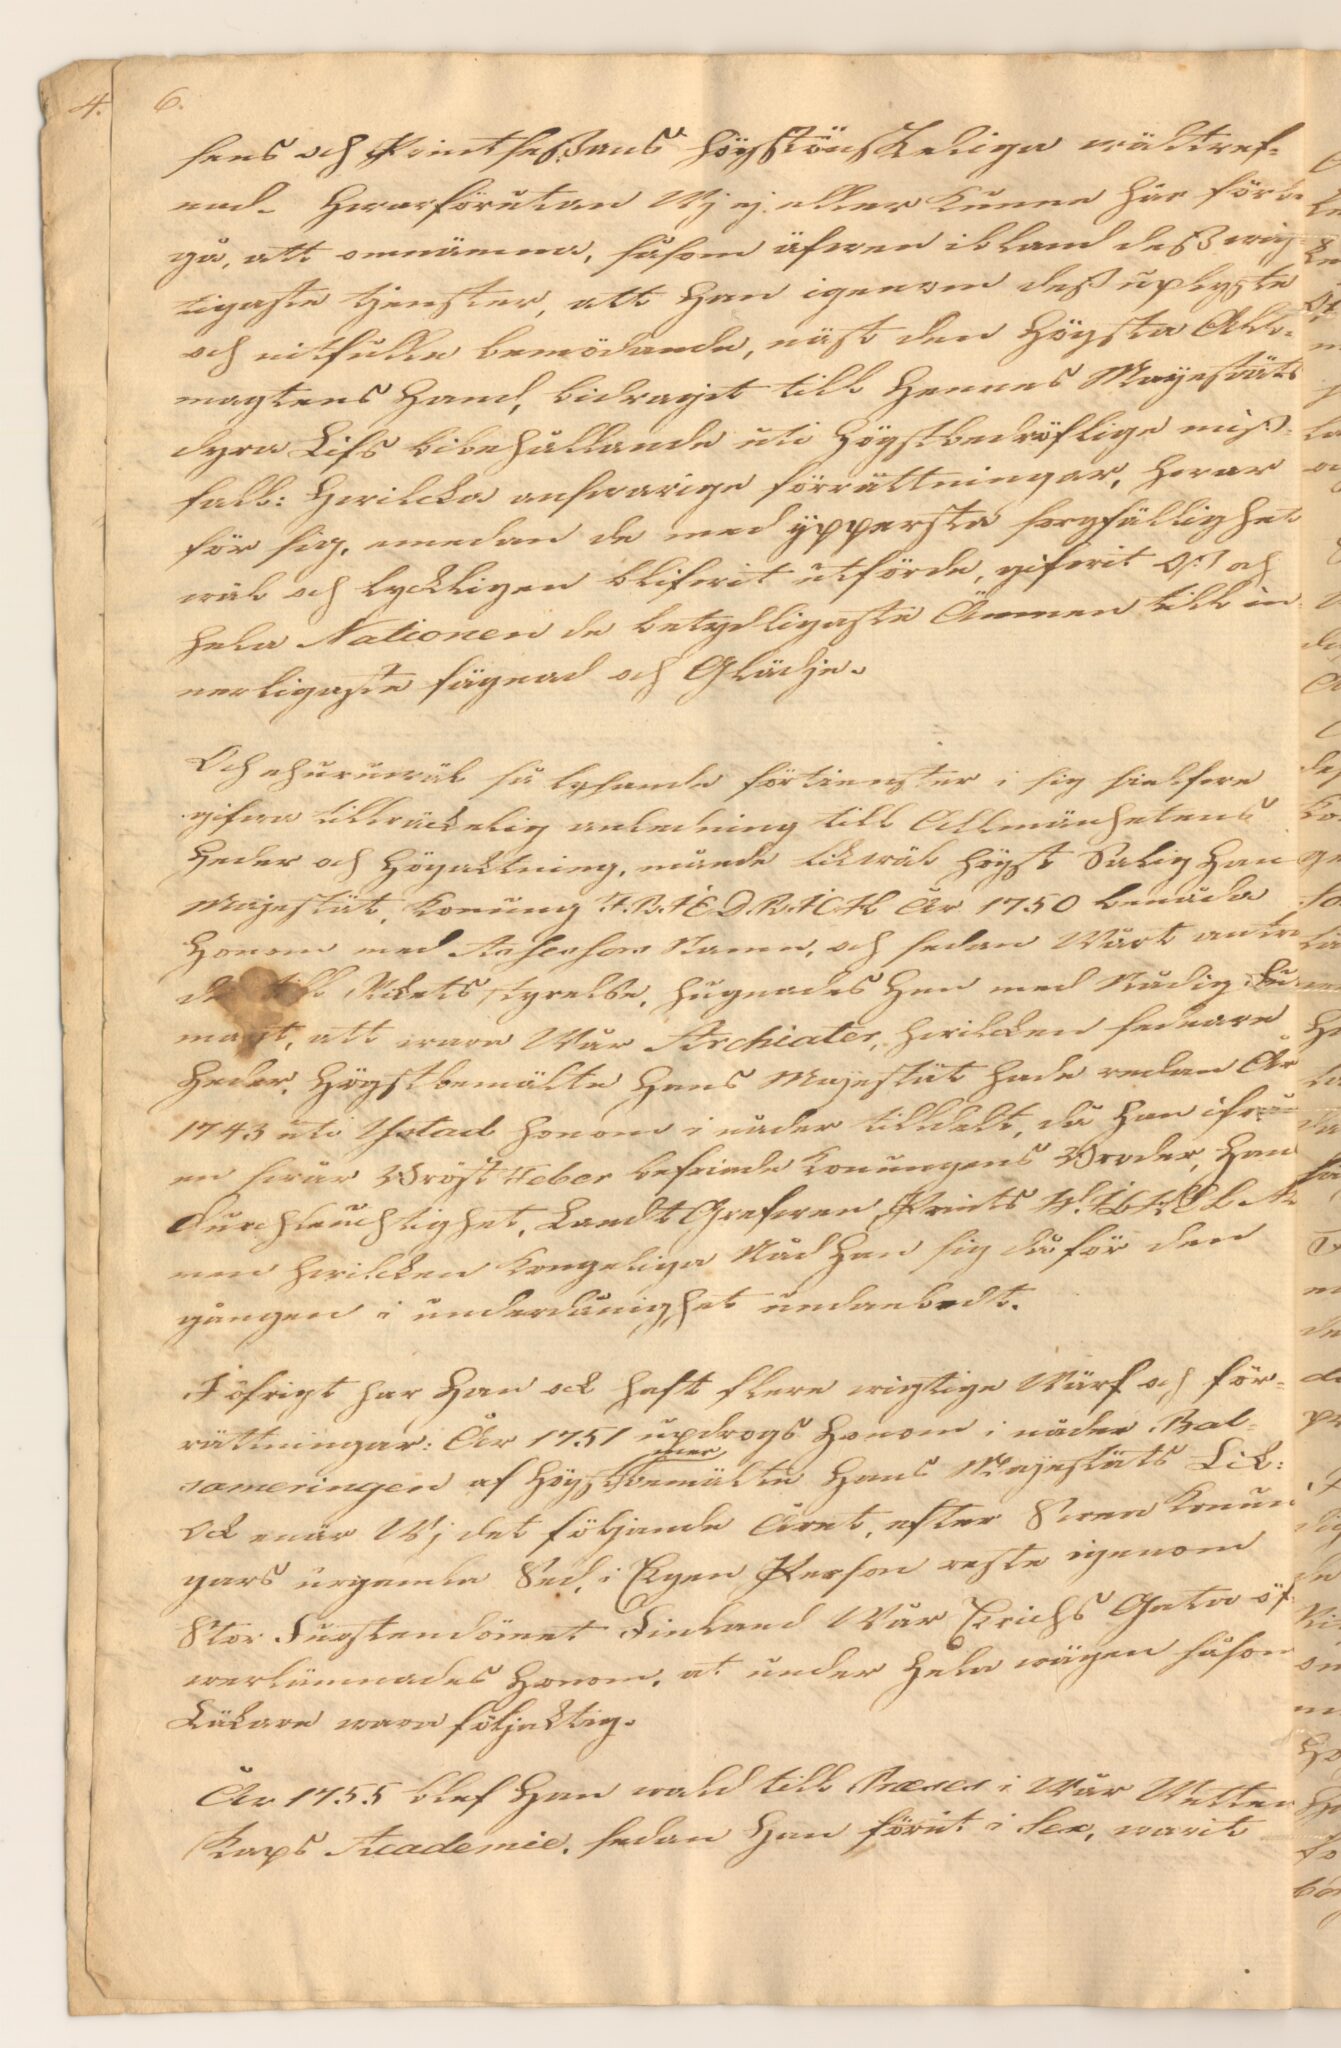 4. 6.
sens och Printsessans högstönskeliga wältref-
nad. Hwarförutan Wj ej eller kunne här förbi
gå, att omnämna, såsom äfwen ibland dess wig-
tigaste tjenster, att Han igenom dess uplyste
och nitfulle bemödande, näst den Högsta All-
magtens Hand, bidragit till Hennes Mayestäts
dyra Lifs bibehållande uti högstbedröflige miss-
fall: Hwilcka answarige förrättningar, hwar
för sig, emedan de med ÿppersta sorgfällighet
wäl och lyckligen blifwit utförde, gifwit Oss och
hela Nationen de betydligaste Ämnen till in-
nerligaste fägnad och Glädje.
Och ehuruwäl så lysande förtienster i sig sielfwe
gifwa tillräckelig anledning till Allmänhetens
Heder och Högaktning, månde likwäl högst Salig Hans
Majestät, Konung FRIEDRICH År 1750 benåda
Honom med Assessors Namn, och sedan Wårt anträ
de till Rikets styrelse, hugnades Han med Nådig Full
magt, att wara Wår Archiater, hwilcken senare
Heder, Högstbemälte Hans Majestät hade redan År
1743 uti Ystad honom i nåder tilldelt, då Han ifrån
en swår Bröst Feber befriade Konungens Broder, Hans
Durchleuchtighet, Landt Grefwen, Prints WILHELM
men hwilcken Kongeliga Nåd Han sig då för den
gången i underdånighet undanbedt.
I öfrigt har Han ock haft flere wigtige Wärf och för-
rättningar: År 1751 updrogs Honom i nåder Bal-
sameringen af Högstbemälte Hans Majestäts Lik:
mer
Ock enär Wj det följande Året, efter Swea Konun
gars urgamla Sed, i Egen Person reste igenom
Stor Furstendömet Finland Wår Erichs Gata öf-
werlämnades Honom, at under hela wägen såsom
Läkare wara följaktig.
År 1755 blef Han wald till Præses i Wår Wetten
skaps Academie, sedan Han förut i Sex, warit